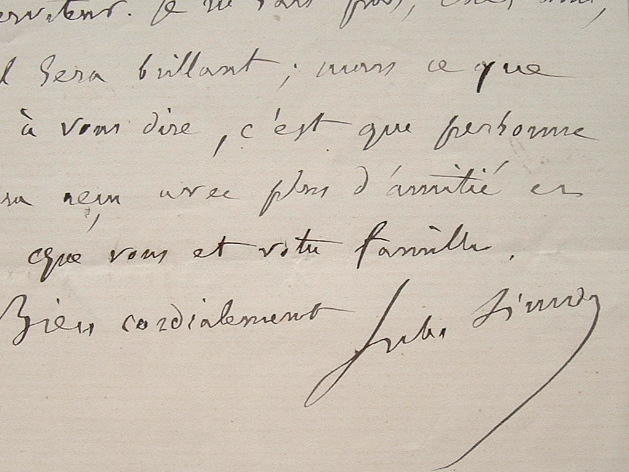 Je ne sais pas,
sera brillant ; mais ce que
à vous dire, c'est que personne
reçu avec plus d'amitié
que vous et votre famille.
Bien cordialement
Jules Simon